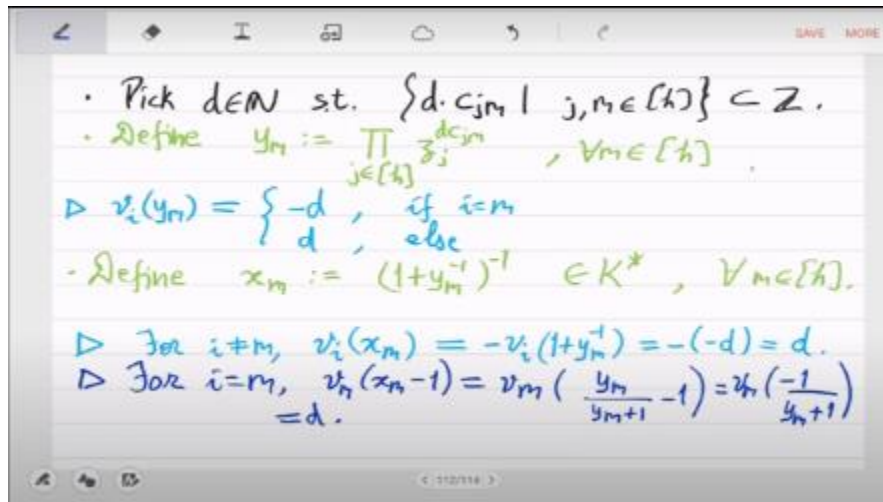 SAVE MORE
· Pick d∈ℕ s.t. {d·c_jm | j,m∈[h]} ⊂ ℤ.
· Define y_m := ∏_{j∈[h]} z_j^{dc_jm} , ∀m∈[h]
▷ v_i(y_m) = { -d , if i=m
d , else
· Define x_m := (1+y_m^{-1})^{-1} ∈ K* , ∀m∈[h].
▷ For i≠m, v_i(x_m) = -v_i(1+y_m^{-1}) = -(-d) = d.
▷ For i=m, v_m(x_m-1) = v_m( y_m/(y_m+1) -1) = v_m( -1/(y_m+1) )
=d.
< 112/114 >